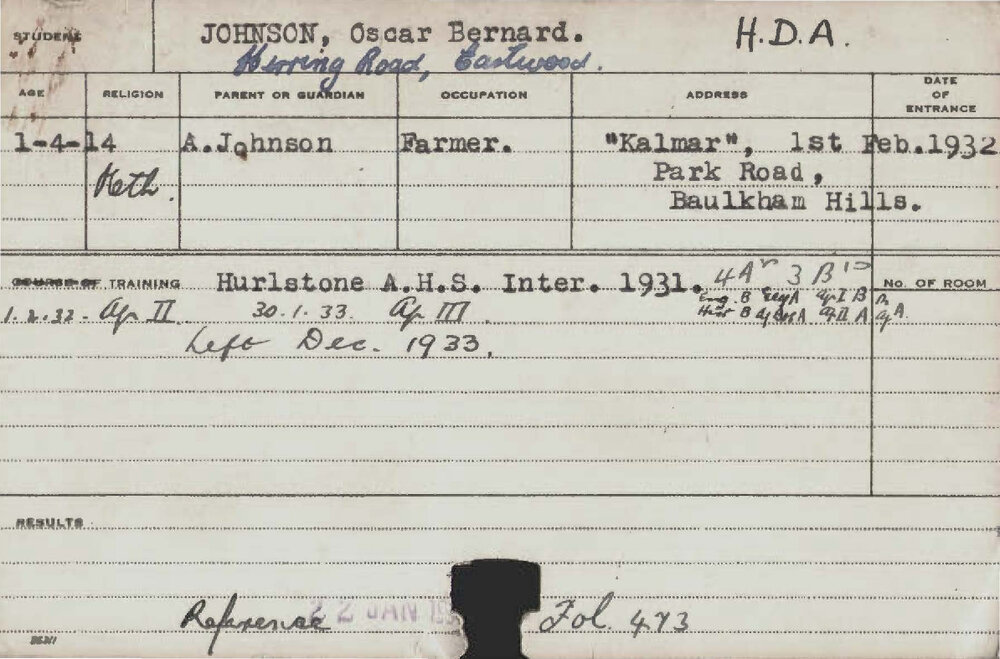 STUDENT JOHNSON, Oscar Bernard. H.D.A.
Herring Road, Eastwood.
AGE RELIGION PARENT OR GUARDIAN OCCUPATION ADDRESS DATE OF ENTRANCE
1-4-14 A.Johnson Farmer. "Kalmar", 1st Feb.1932
Meth. Park Road,
Baulkham Hills.
COURSE OF TRAINING Hurlstone A.H.S. Inter. 1931. 4A's 3 B's No. OF ROOM
Eng. B A B
1.2.32. Ag II. 30.1.33. Ag III Hist B A A
Left Dec. 1933.
RESULTS
Reference 22 JAN Fol. 473